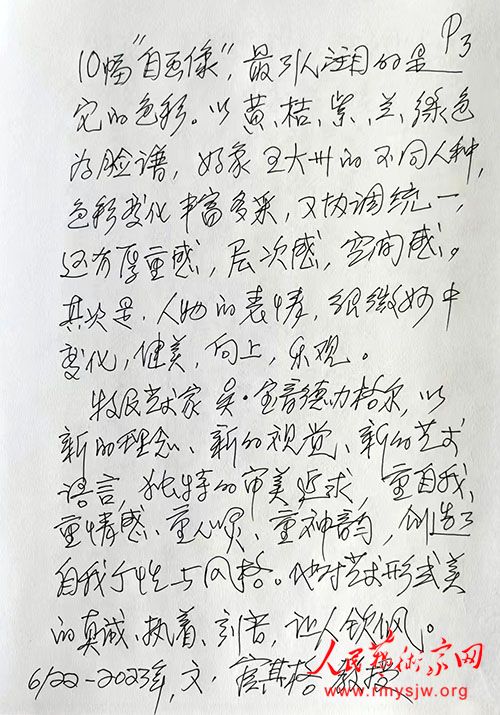 P3
10幅“自画像”，最引人注目的是
它的色彩。以黄、桔、紫、兰、绿色
为脸谱，好象五大州的不同人种，
色彩变化丰富多采，又协调统一，
还有厚重感，层次感，空间感。
其次是，人物的表情，细微妙中
变化，健美，向上，乐观。
牧民艺术家 吴·宝音德力格尔，以
新的理念、新的视觉、新的艺术
语言，独特的审美追求，重自我、
重情感、重心灵、重神韵，创造了
自我个性与风格。他对艺术形式美
的真诚、执着、刻苦，让人钦佩。
6/22-2023年，文·富其格 教授
人民艺术家网
www.rmysjw.org